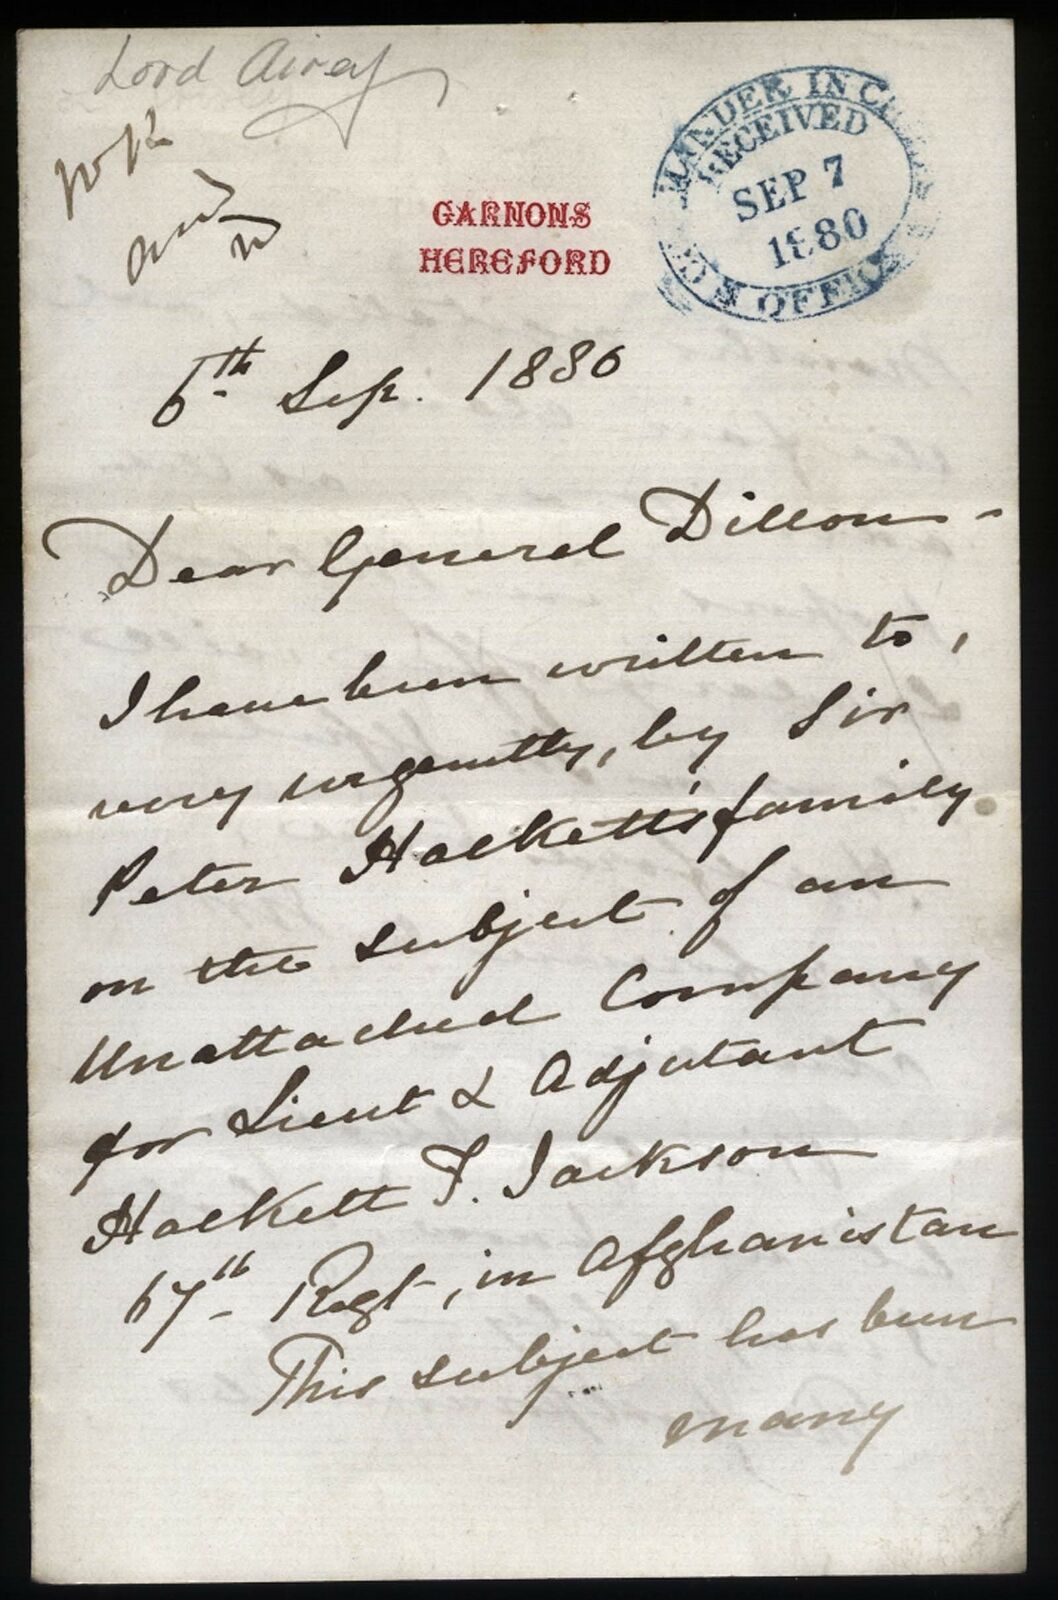 Lord Airey
GARNONS
HEREFORD
MANDER IN C
RECEIVED
SEP 7
1880
OFFICE
6th Sep. 1880
Dear General Dillon -
I have been written to,
very urgently, by Sir
Peter Halkett's family
on the subject of an
Unattached Company
for Lieut & Adjutant
Halkett F. Jackson
67th Regt, in Afghanistan
This subject has been
many